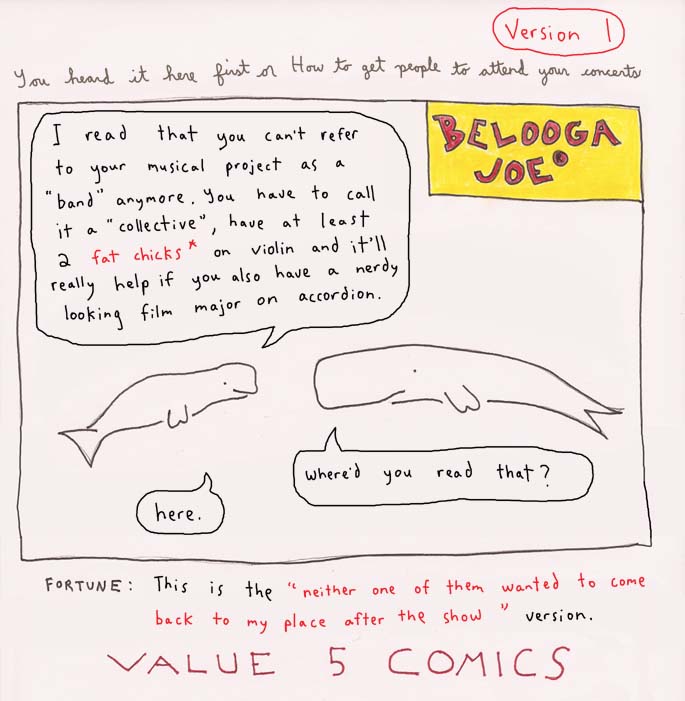 Version 1
You heard it here first or How to get people to attend your concerts
BELOOGA
JOE®
I read that you can't refer
to your musical project as a
"band" anymore. You have to call
it a "collective", have at least
2 fat chicks* on violin and it'll
really help if you also have a nerdy
looking film major on accordion.
where'd you read that?
here.
FORTUNE: This is the "neither one of them wanted to come
back to my place after the show" version.
VALUE 5 COMICS